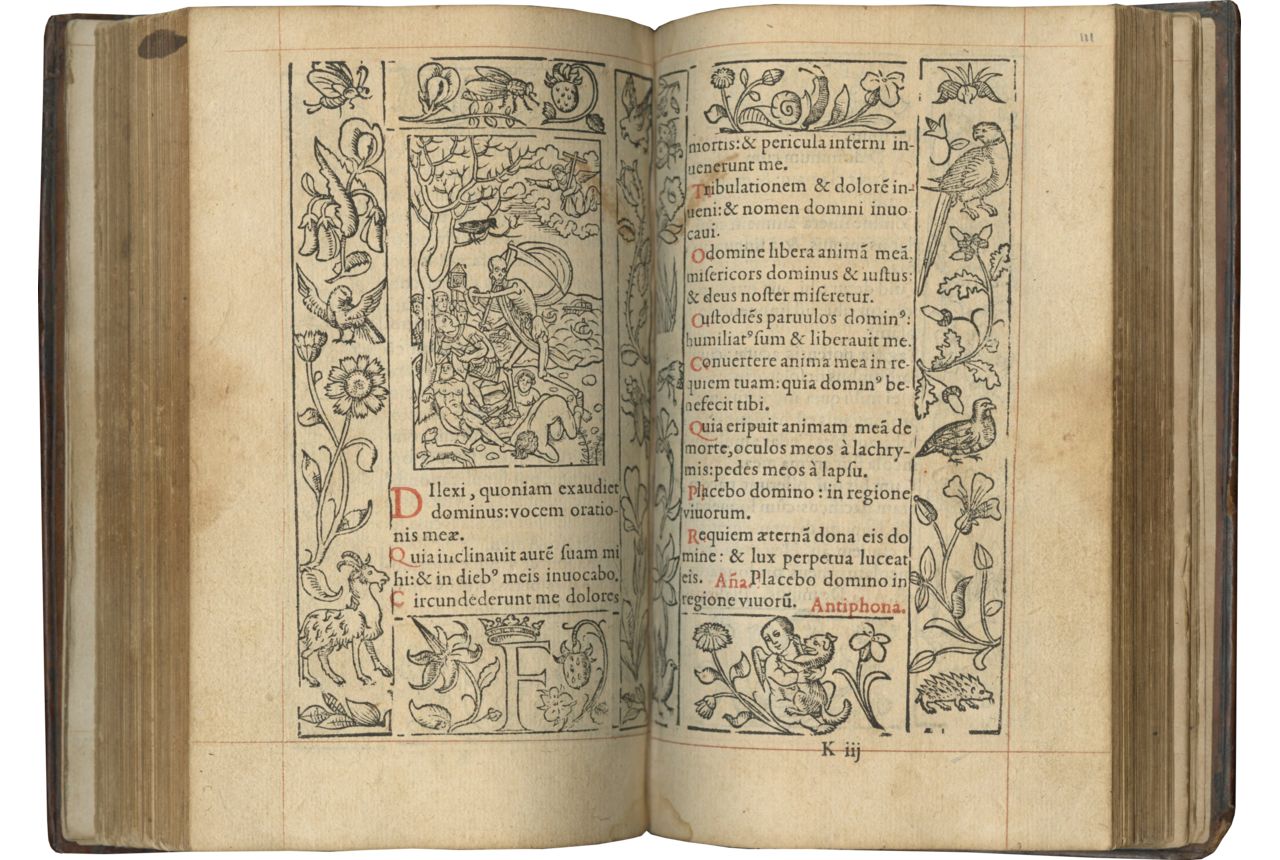 DIlexi, quoniam exaudiet
dominus: vocem oratio-
nis meæ.
Quia inclinauit aurē ſuam mi
hi: & in dieb⁹ meis inuocabo.
Circundederunt me dolores
F
111
mortis: & pericula inferni in-
uenerunt me.
Tribulationem & dolorē in-
ueni: & nomen domini inuo
caui.
O domine libera animā meā,
miſericors dominus & iuſtus:
& deus noſter miſeretur.
Cuſtodiēs paruulos domin⁹:
humiliat⁹ ſum & liberauit me.
Conuertere anima mea in re-
quiem tuam: quia domin⁹ be-
nefecit tibi.
Quia eripuit animam meā de
morte, oculos meos à lachry-
mis: pedes meos à lapſu.
Placebo domino: in regione
viuorum.
Requiem æternā dona eis do
mine: & lux perpetua luceat
eis. Aña. Placebo domino in
regione viuorū. Antiphona.
K iij